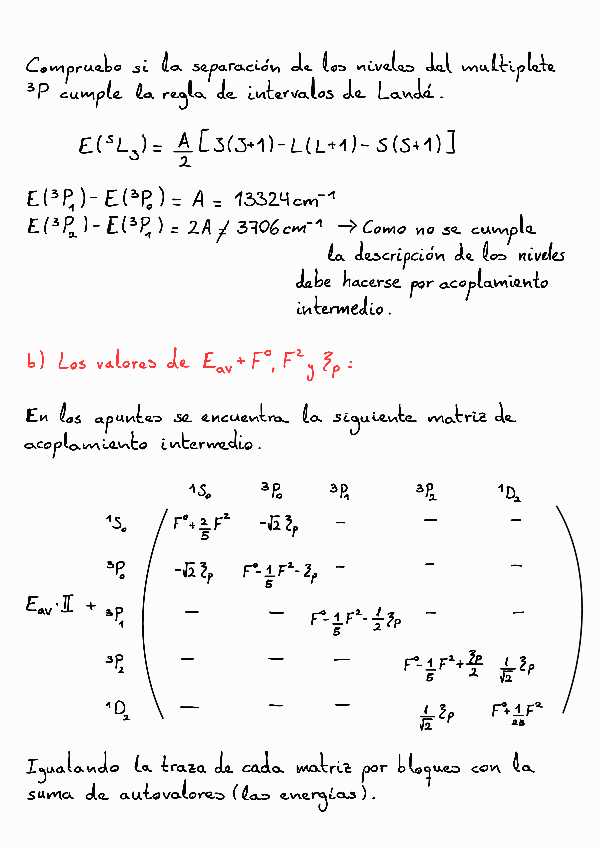 Compruebo si la separación de los niveles del multiplete
³P cumple la regla de intervalos de Landé.
E(ˢL_J) = A/2 [J(J+1) - L(L+1) - S(S+1)]
E(³P₁) - E(³P₀) = A = 13324 cm⁻¹
E(³P₂) - E(³P₁) = 2A ≠ 3706 cm⁻¹ → Como no se cumple
la descripción de los niveles
debe hacerse por acoplamiento
intermedio.
b) Los valores de E_av + F⁰, F² y ξ_p :
En los apuntes se encuentra la siguiente matriz de
acoplamiento intermedio.
¹S₀ ³P₀ ³P₁ ³P₂ ¹D₂
¹S₀ F⁰+2/5 F² -√2 ξ_p - - -
³P₀ -√2 ξ_p F⁰-1/5 F²-ξ_p - - -
E_av·𝕀 + ³P₁ - - F⁰-1/5 F²-1/2 ξ_p - -
³P₂ - - - F⁰-1/5 F²+ξ_p/2 1/√2 ξ_p
¹D₂ - - - 1/√2 ξ_p F⁰+1/25 F²
Igualando la traza de cada matriz por bloques con la
suma de autovalores (las energías).